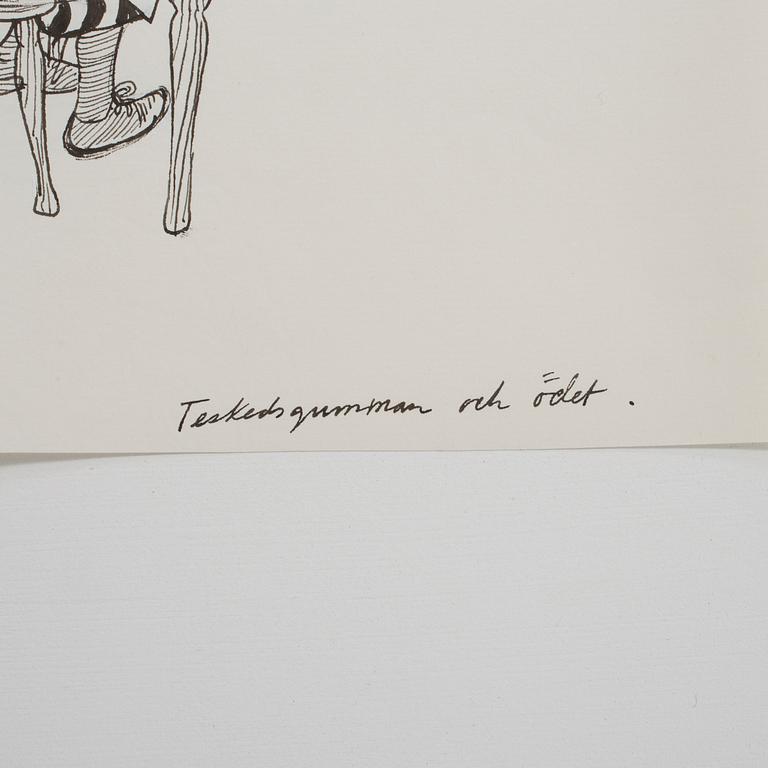 Teskedsgumman och ödet.